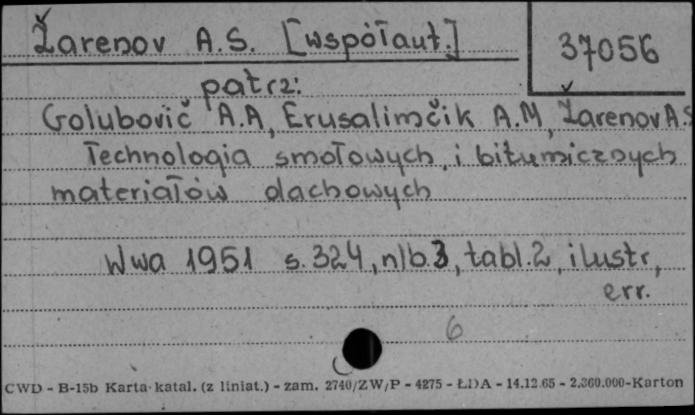 Žarenov A.S. [współaut.]
37056
patrz:
Golubovič A.A, Erusalimčik A.M, Žarenov A.S
Technologia smołowych i bitumicznych
materiałów dachowych
Wwa 1951 s. 324, nlb. 3, tabl. 2, ilustr,
err.
6
CWD - B-15b Karta katal. (z liniat.) - zam. 2740/ZW/P - 4275 - ŁDA - 14.12.65 - 2.360.000-Karton